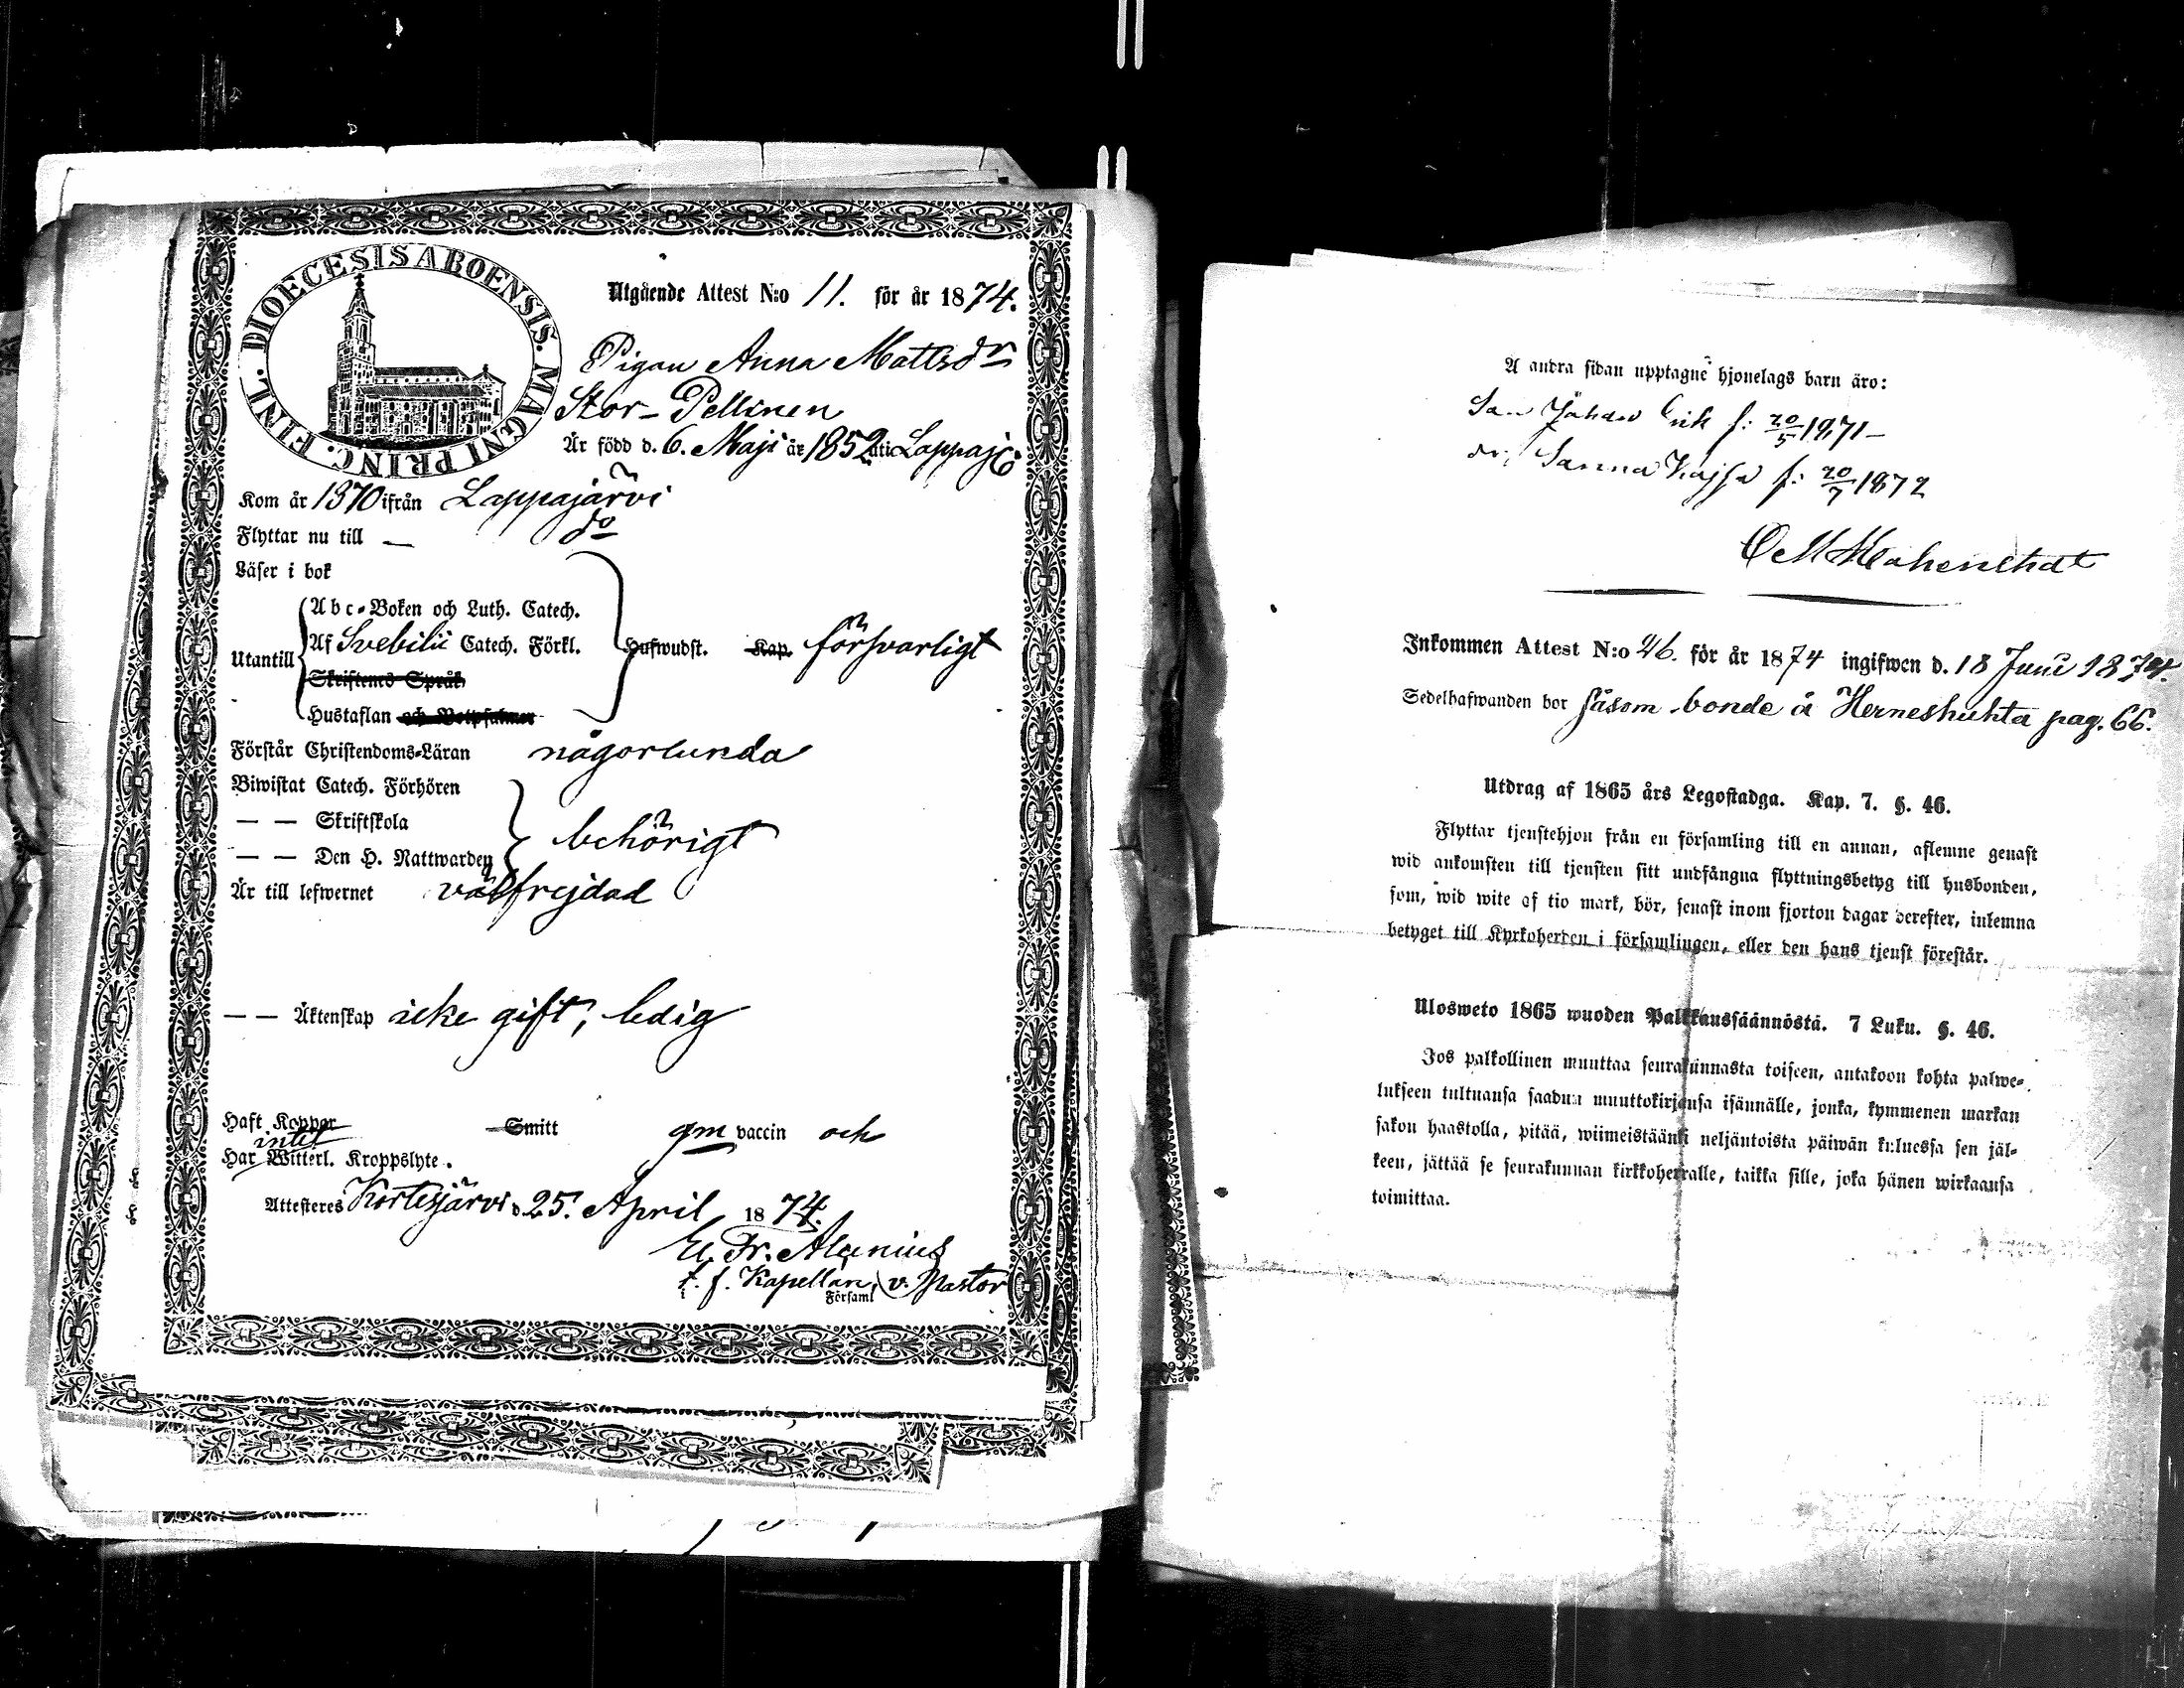 DIOECESIS ABOENSIS. MAGNI PRINC. FINL.
Utgående Attest N:o 11. för år 1874.
Pigan Anna Mattsdr
Stor-Pellinen
Är född d. 6. Maji år 1852 uti Lappaj
Kom år 1870 ifrån Lappajärvi
Flyttar nu till — do
Läser i bok
Abc-Boken och Luth. Catech.
Utantill Af Svebilii Catech. Förkl. Hufwudst. Kap. försvarligt
Skriftenes Språk
Hustaflan och Botpsalmer
Förstår Christendoms-Läran någorlunda
Biwistat Catech. Förhören
— — Skriftskola behörigt
— — Den H. Nattwarden
Är till lefwernet välfrejdad
— — Äktenskap icke gift, ledig
Haft Koppor Smitt gm vaccin och
intet
Har Witterl. Kroppslyte.
Attesteres Kortesjärvi d. 25. April 1874.
Fr. Alcenius
t. f. Kapellan, v. Pastor
Församl
Å andra sidan upptagne hjonelags barn äro:
Son Johan Erik f: 20/5 1871—
dr, Sanna Kajsa f: 20/7 1872
Inkommen Attest N:o 26. för år 1874 ingifwen d. 18 Juni 1874.
Sedelhafwanden bor såsom bonde å Herneshuhta pag. 66.
Utdrag af 1865 års Legostadga. Kap. 7. §. 46.
Flyttar tjenstehjon från en församling till en annan, aflemne genast
wid ankomsten till tjensten sitt undfångna flyttningsbetyg till husbonden,
som, wid wite af tio mark, bör, senast inom fjorton dagar derefter, inlemna
betyget till Kyrkoherden i församlingen, eller den hans tjenst förestår.
Ulosweto 1865 wuoden Palkkaussäännöstä. 7 Luku. §. 46.
Jos palkollinen muuttaa seurakunnasta toiseen, antakoon kohta palwe-
lukseen tultuansa saadun muuttokirjansa isännälle, jonka, kymmenen markan
sakon haastolla, pitää, wiimeistäänki neljäntoista päiwän kuluessa sen jäl-
keen, jättää se seurakunnan kirkkoherralle, taikka sille, joka hänen wirkaansa
toimittaa.